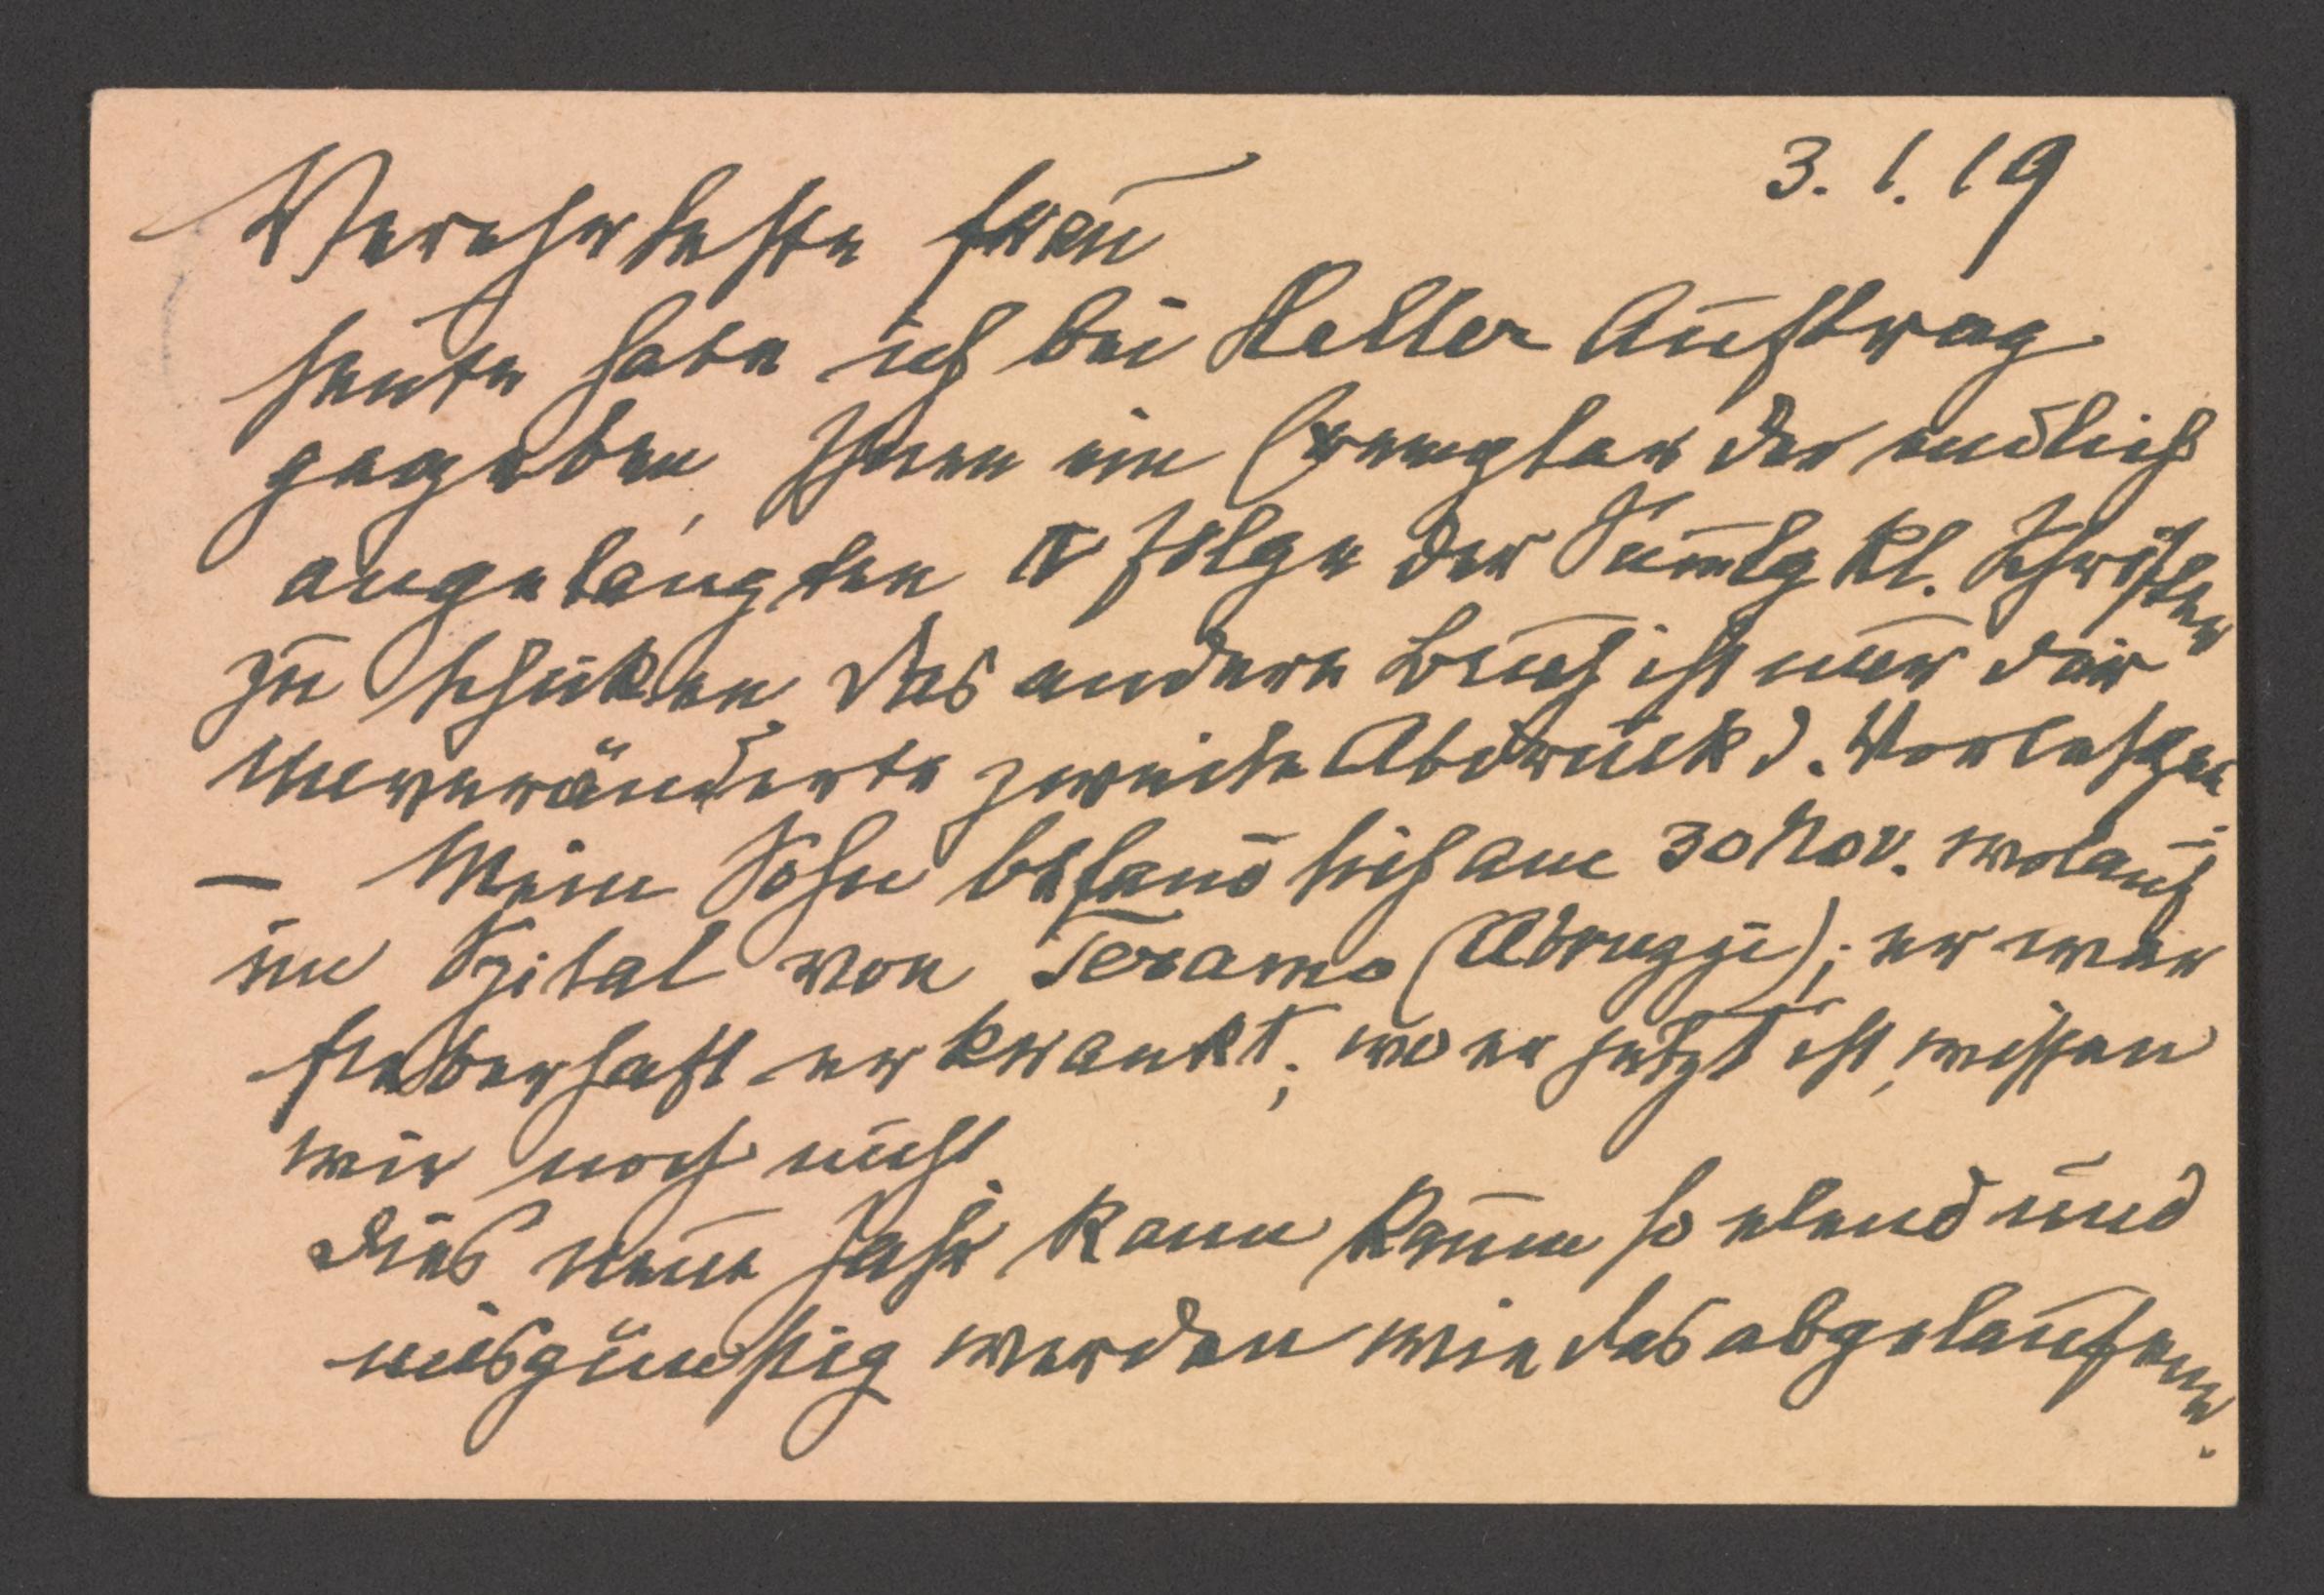 3. 1. 19
Verehrteste Frau
heute habe ich bei Heller Auftrag
gegeben, Ihnen ein Exemplar der endlich
angelangten IV Folge der Sam̅lg kl. Schriften
zu schicken. Das andere Buch ist nur der
unveränderte zweite Abdruck d. Vorlesgen.
— Mein Sohn befand sich am 30 Nov. wolauf
im Spital von Teramo (Abruzzi); er war
fieberhaft erkrankt; wo er jetzt ist, wissen
wir noch nicht.
Dies neue Jahr kann kaum so elend und
misgünstig werden wie das abgelaufene.